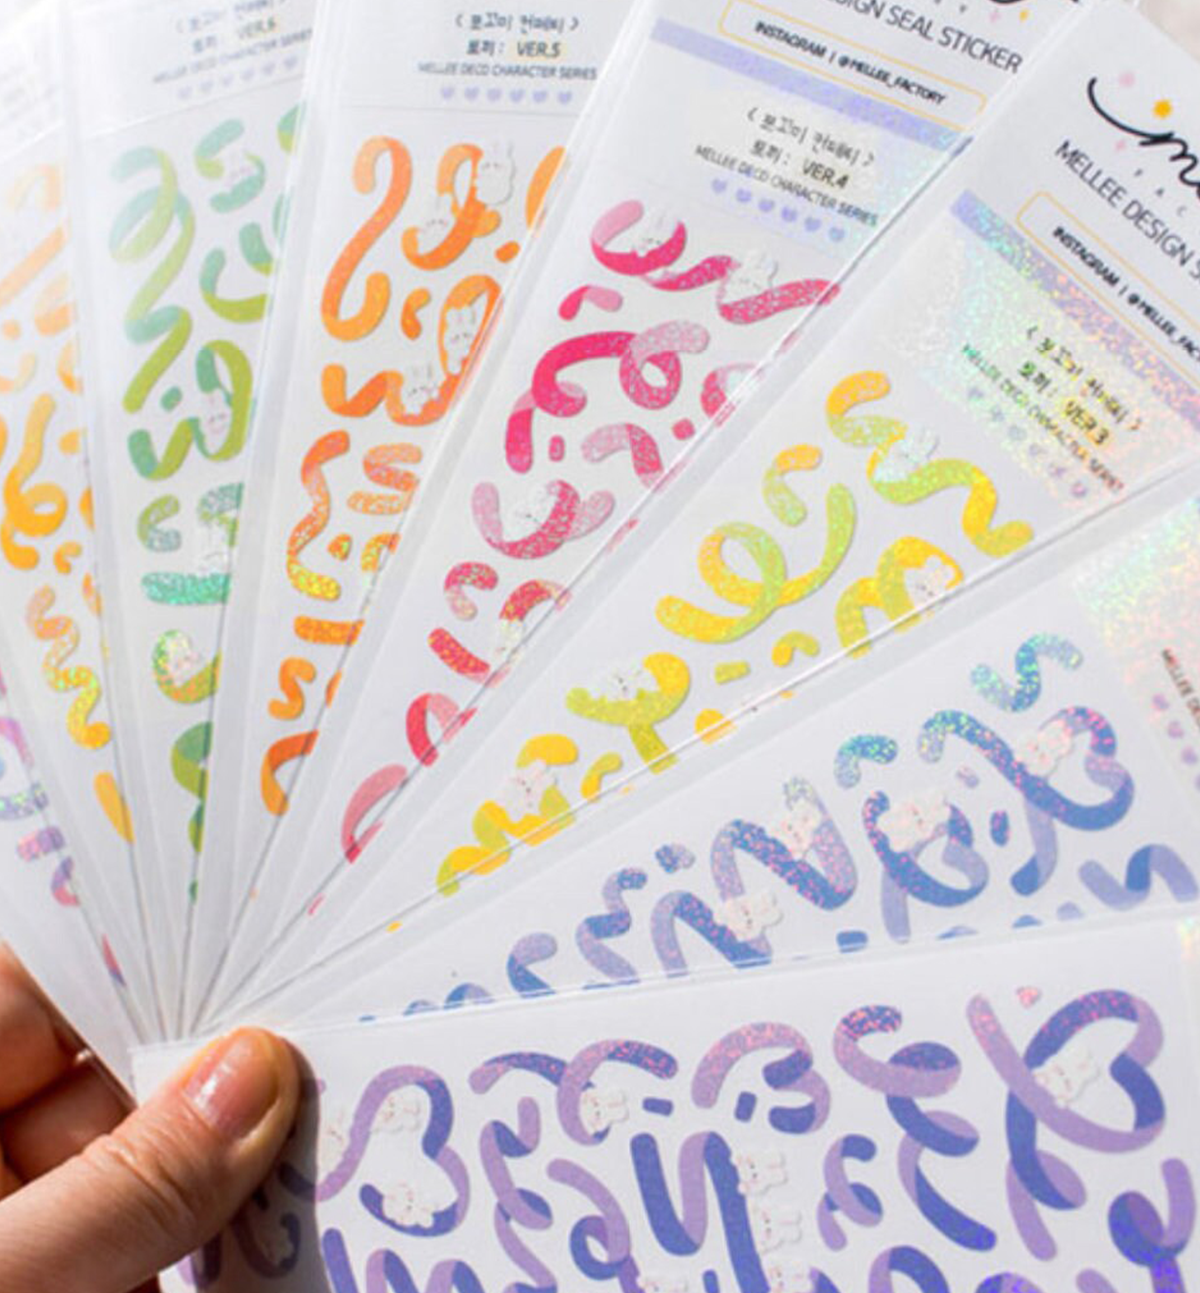 < 뽀꼬미 컨페티 >
토끼 : VER.6
MELLEE DECO CHARACTER SERIES
< 뽀꼬미 컨페티 >
토끼 : VER.5
MELLEE DECO CHARACTER SERIES
SIGN SEAL STICKER
INSTAGRAM | @MELLEE_FACTORY
< 뽀꼬미 컨페티 >
토끼 : VER.4
MELLEE DECO CHARACTER SERIES
MELLEE DESIGN S
INSTAGRAM | @MELLEE_FAC
< 뽀꼬미 컨페티 >
토끼 : VER.3
MELLEE DECO CHARACTER SERIES
MELLEE D